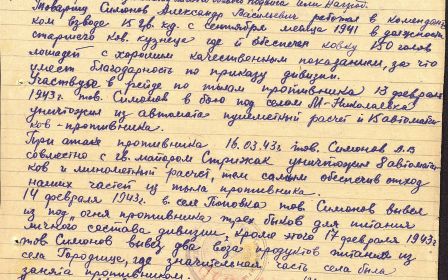 подвига или заслуг
Товарищ Симонов Александр Васильевич работал в комендант
ком взводе 15 гв. кд. с сентября месяца 1941 в должности
старшего ков. кузнеца где и обеспечил ковку 150 голов
лошадей с хорошим качественным показанием, за что
имеет благодарность по приказу дивизии.
Участвуя в рейде по тылам противника 13 февраля
1943г. тов. Симонов в бою под селом М-Николаевка
уничтожил из автомата пулеметный расчет и автоматчи
ков-противника.
При атаке противника 16.03.43г. тов. Симонов А.В
совместно с гв. майором Стрижак уничтожил 8 автоматчи
ков и минометный расчет, тем самым обеспечив отход
наших частей из тыла противника.
14 февраля 1943г. в селе Поповка тов. Симонов вывел
из под огня противника трех быков для питания
личного состава дивизии, кроме этого 17 февраля 1943г.
тов Симонов вывез два воза продуктов питания из
села Городище, где значительная часть села была
занята противником.